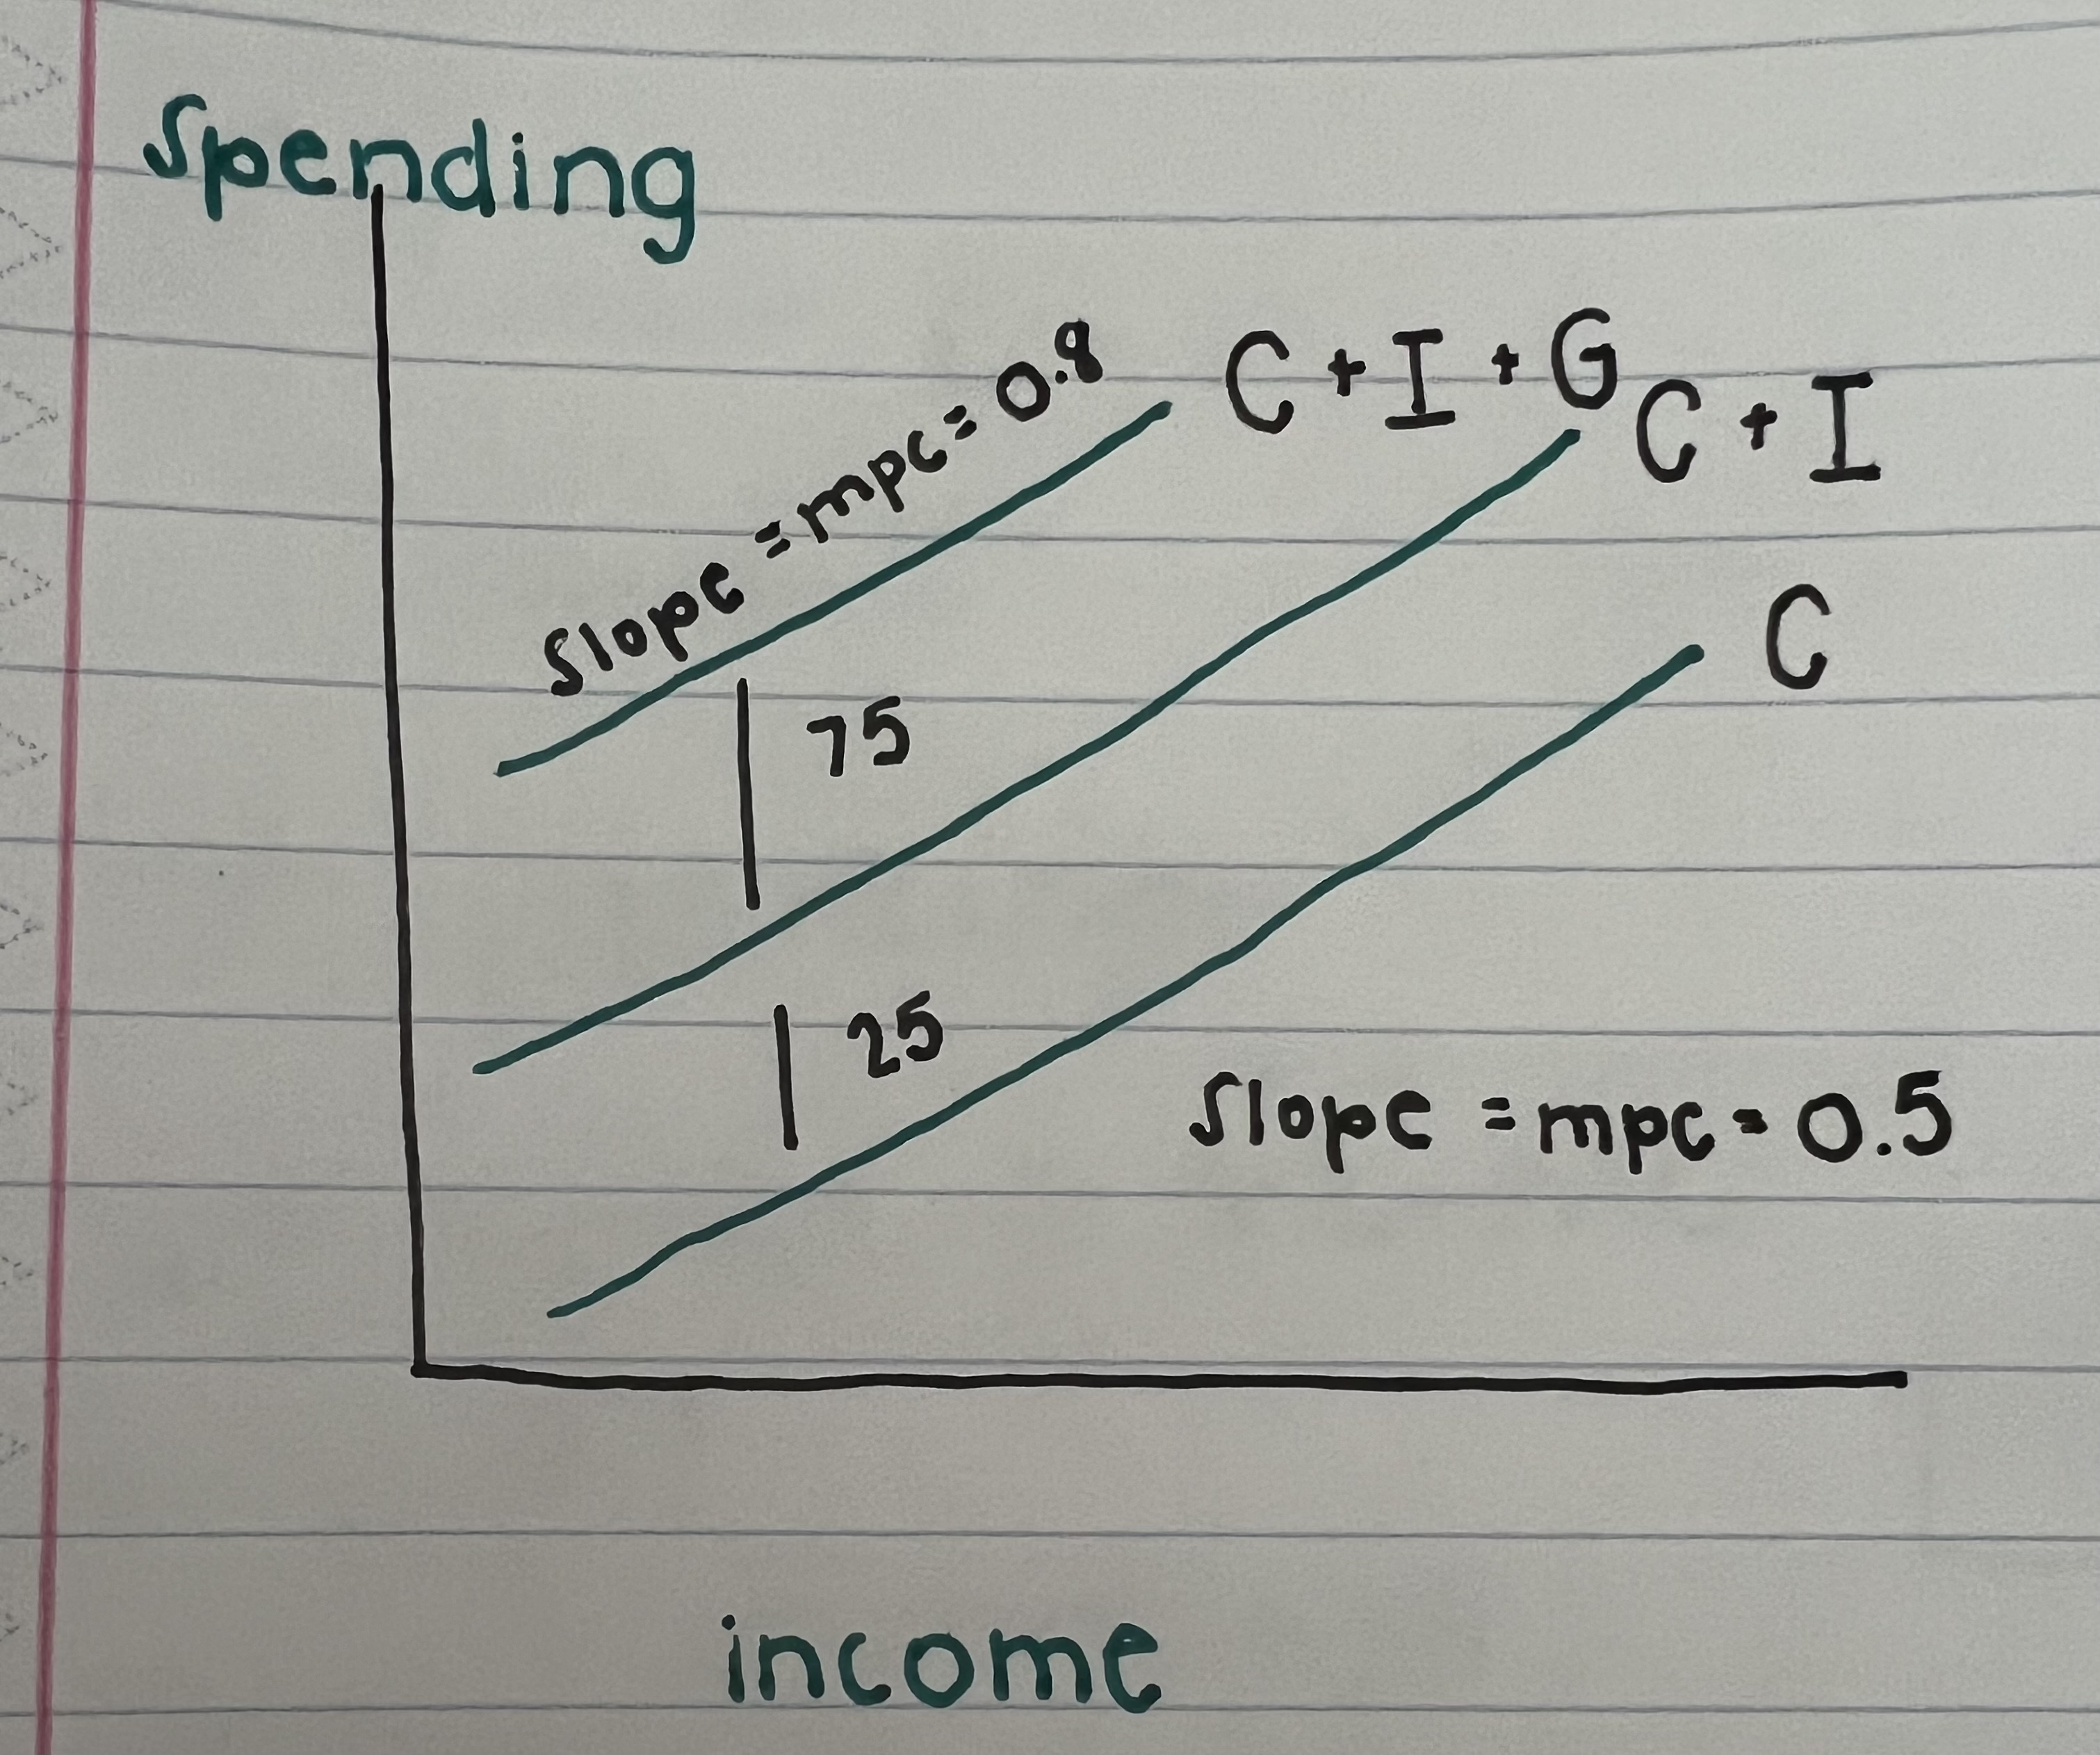 Spending
Slope = mpc = 0.8
C + I + G
C + I
C
75
25
Slope = mpc = 0.5
income